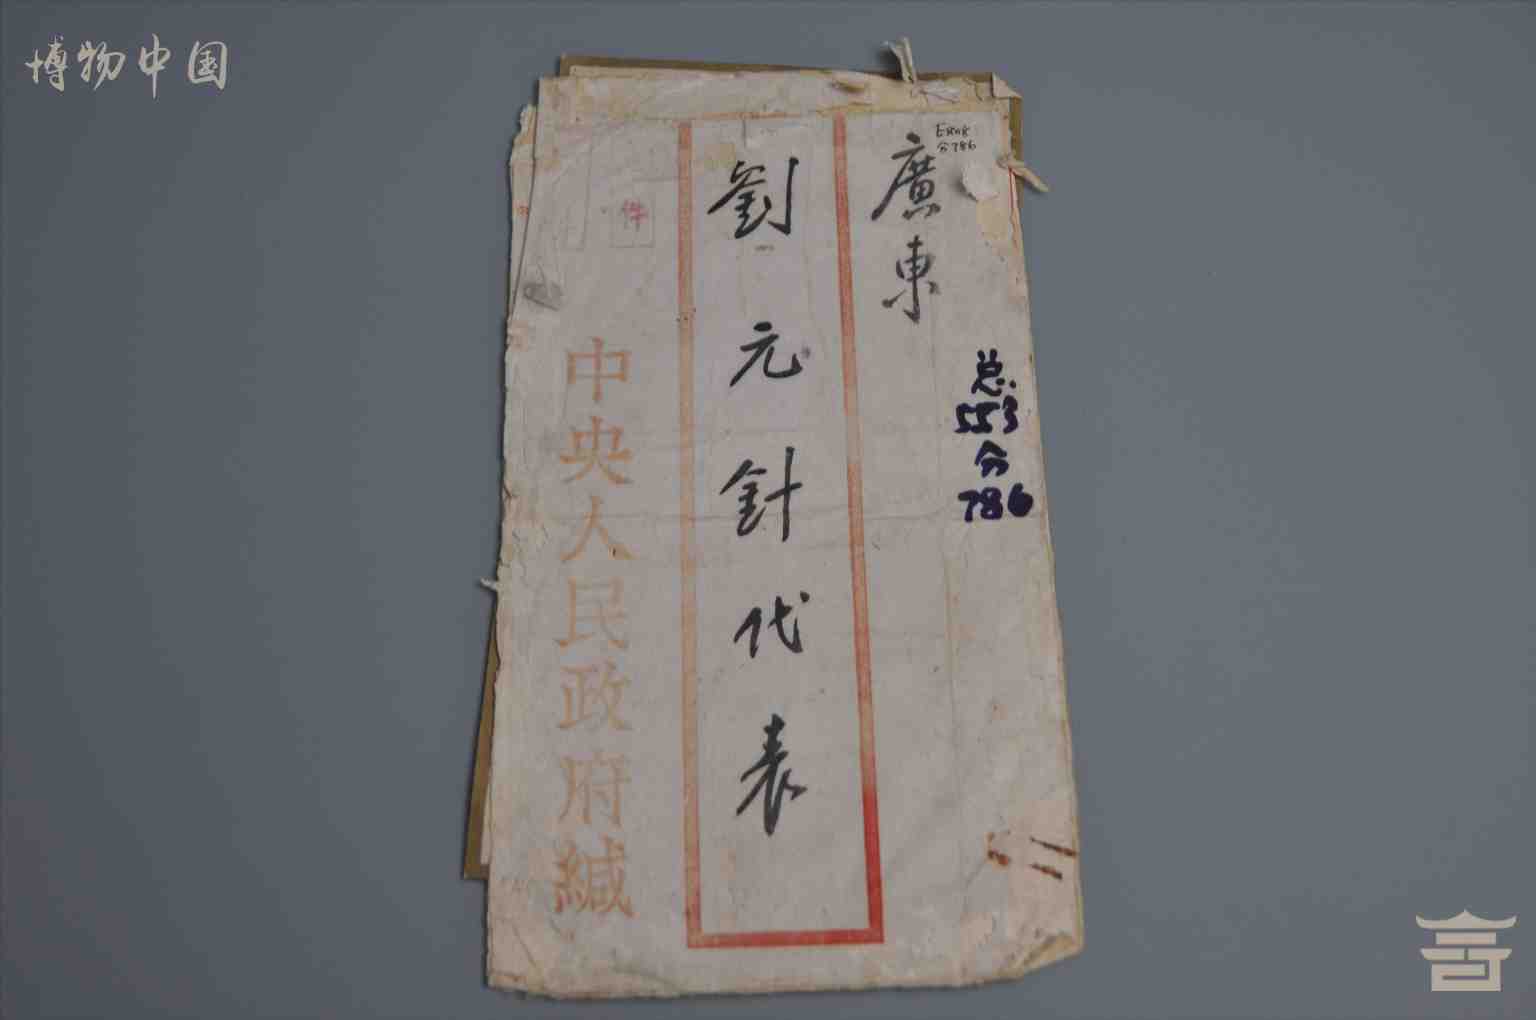 博物中国
E808
分786
廣東
总
553
分
786
劉元針代表
件
中央人民政府緘